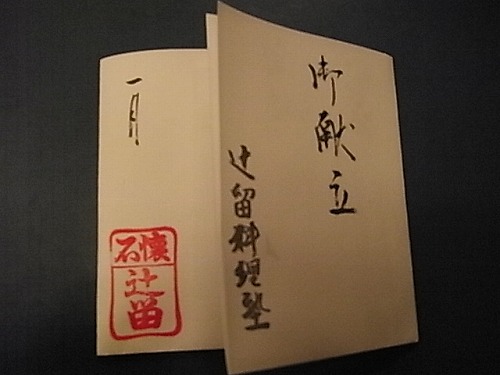 御献立
辻留料理塾
一月
懐石
辻留